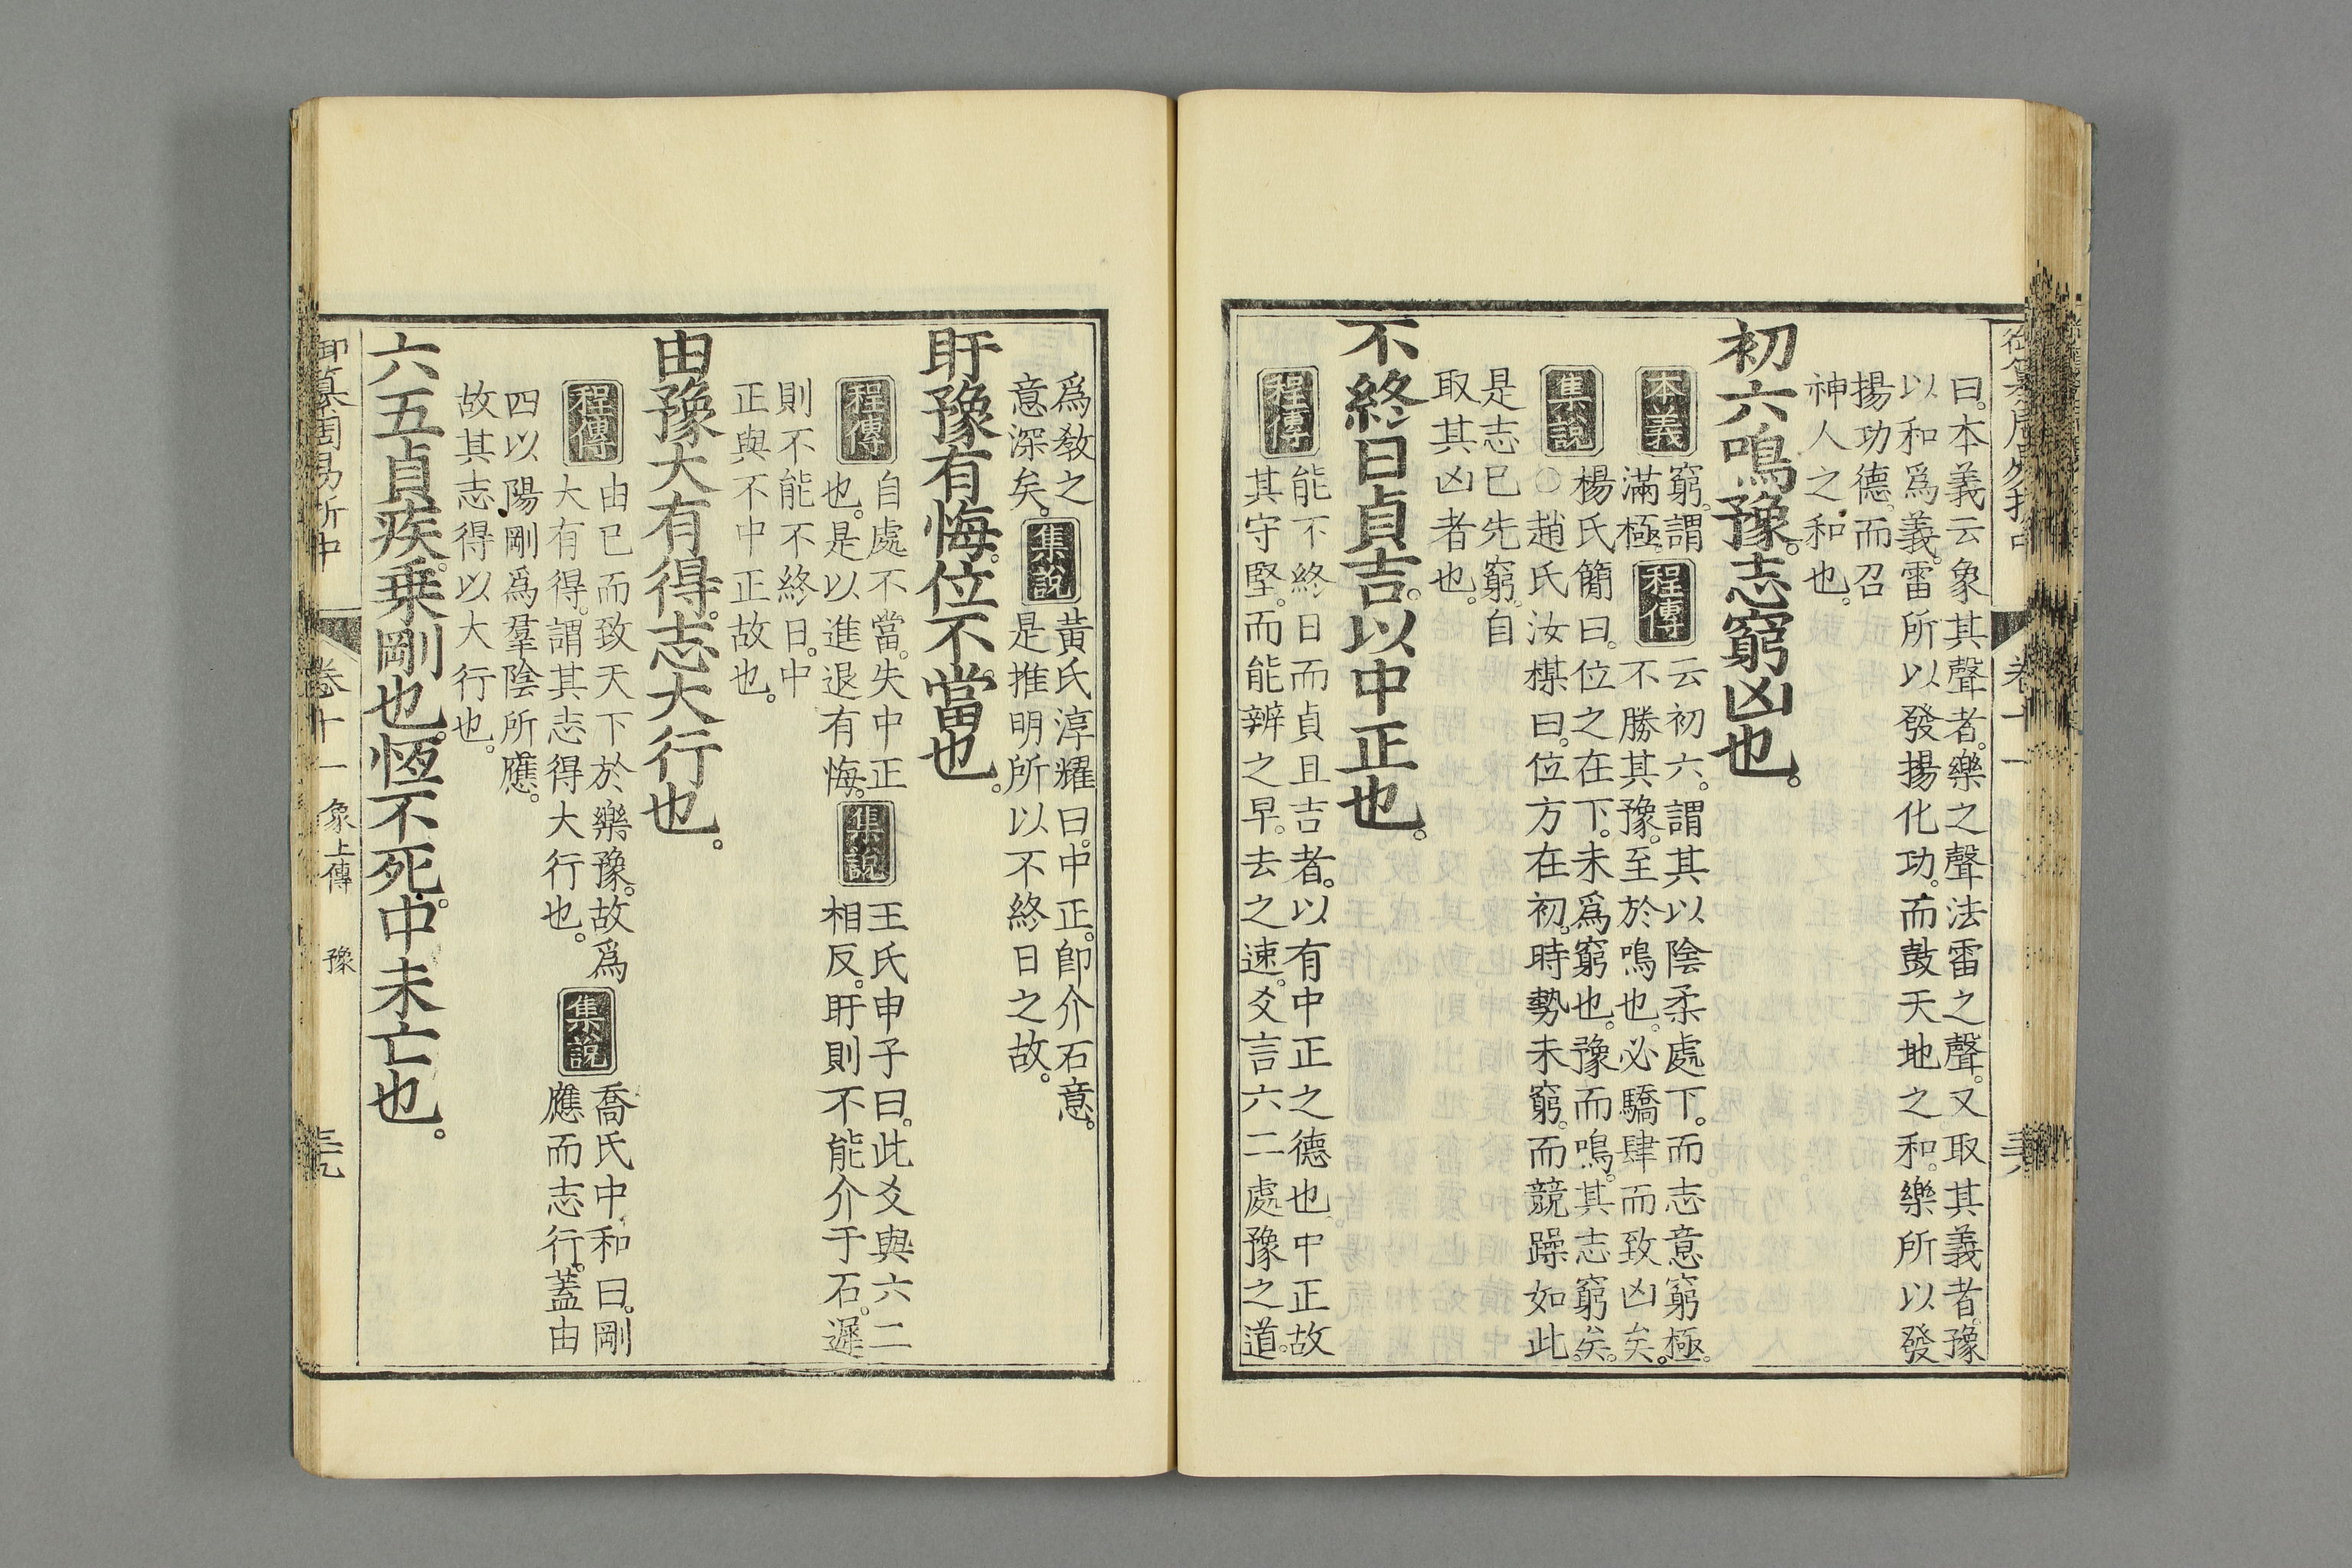 曰。本義云象其聲者。樂之聲法雷之聲。又取其義者。豫
以和爲義。雷所以發揚化功。而鼓天地之和。樂所以發
揚功德。而召
神人之和也。
初六鳴豫。志窮凶也。
本義
窮。謂
滿極。
程傳
云初六。謂其以陰柔處下。而志意窮極。
不勝其豫。至於鳴也。必驕肆而致凶矣。
集說
楊氏簡曰。位之在下。未爲窮也。豫而鳴。其志窮矣。
○趙氏汝楳曰。位方在初。時勢未窮。而競躁如此。
是志已先窮。自
取其凶者也。
不終日貞吉。以中正也。
程傳
能不終日而貞且吉者。以有中正之德也。中正故
其守堅。而能辨之早。去之速。爻言六二處豫之道。
卷十一
爲敎之
意深矣。
集說
黃氏淳耀曰。中正。卽介石意。
是推明所以不終日之故。
盱豫有悔。位不當也。
程傳
自處不當。失中正
也。是以進退有悔。
集說
王氏申子曰。此爻與六二
相反。盱則不能介于石。遲
則不能不終日。中
正與不中正故也。
由豫大有得。志大行也。
程傳
由已而致天下於樂豫。故爲
大有得。謂其志得大行也。
集說
喬氏中和曰。剛
應而志行。蓋由
四以陽剛爲羣陰所應。
故其志得以大行也。
六五貞疾。乗剛也。恆不死。中未亡也。
御纂周易折中 卷十一 象上傳 豫 三九